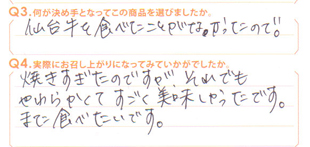 Q3.何が決め手となってこの商品を選びましたか。
仙台牛を食べたことがなかったので!
Q4.実際にお召し上がりになってみていかがでしたか。
焼きすぎたのですが、それでも
やわらかくてすごく美味しかったです。
また食べたいです。